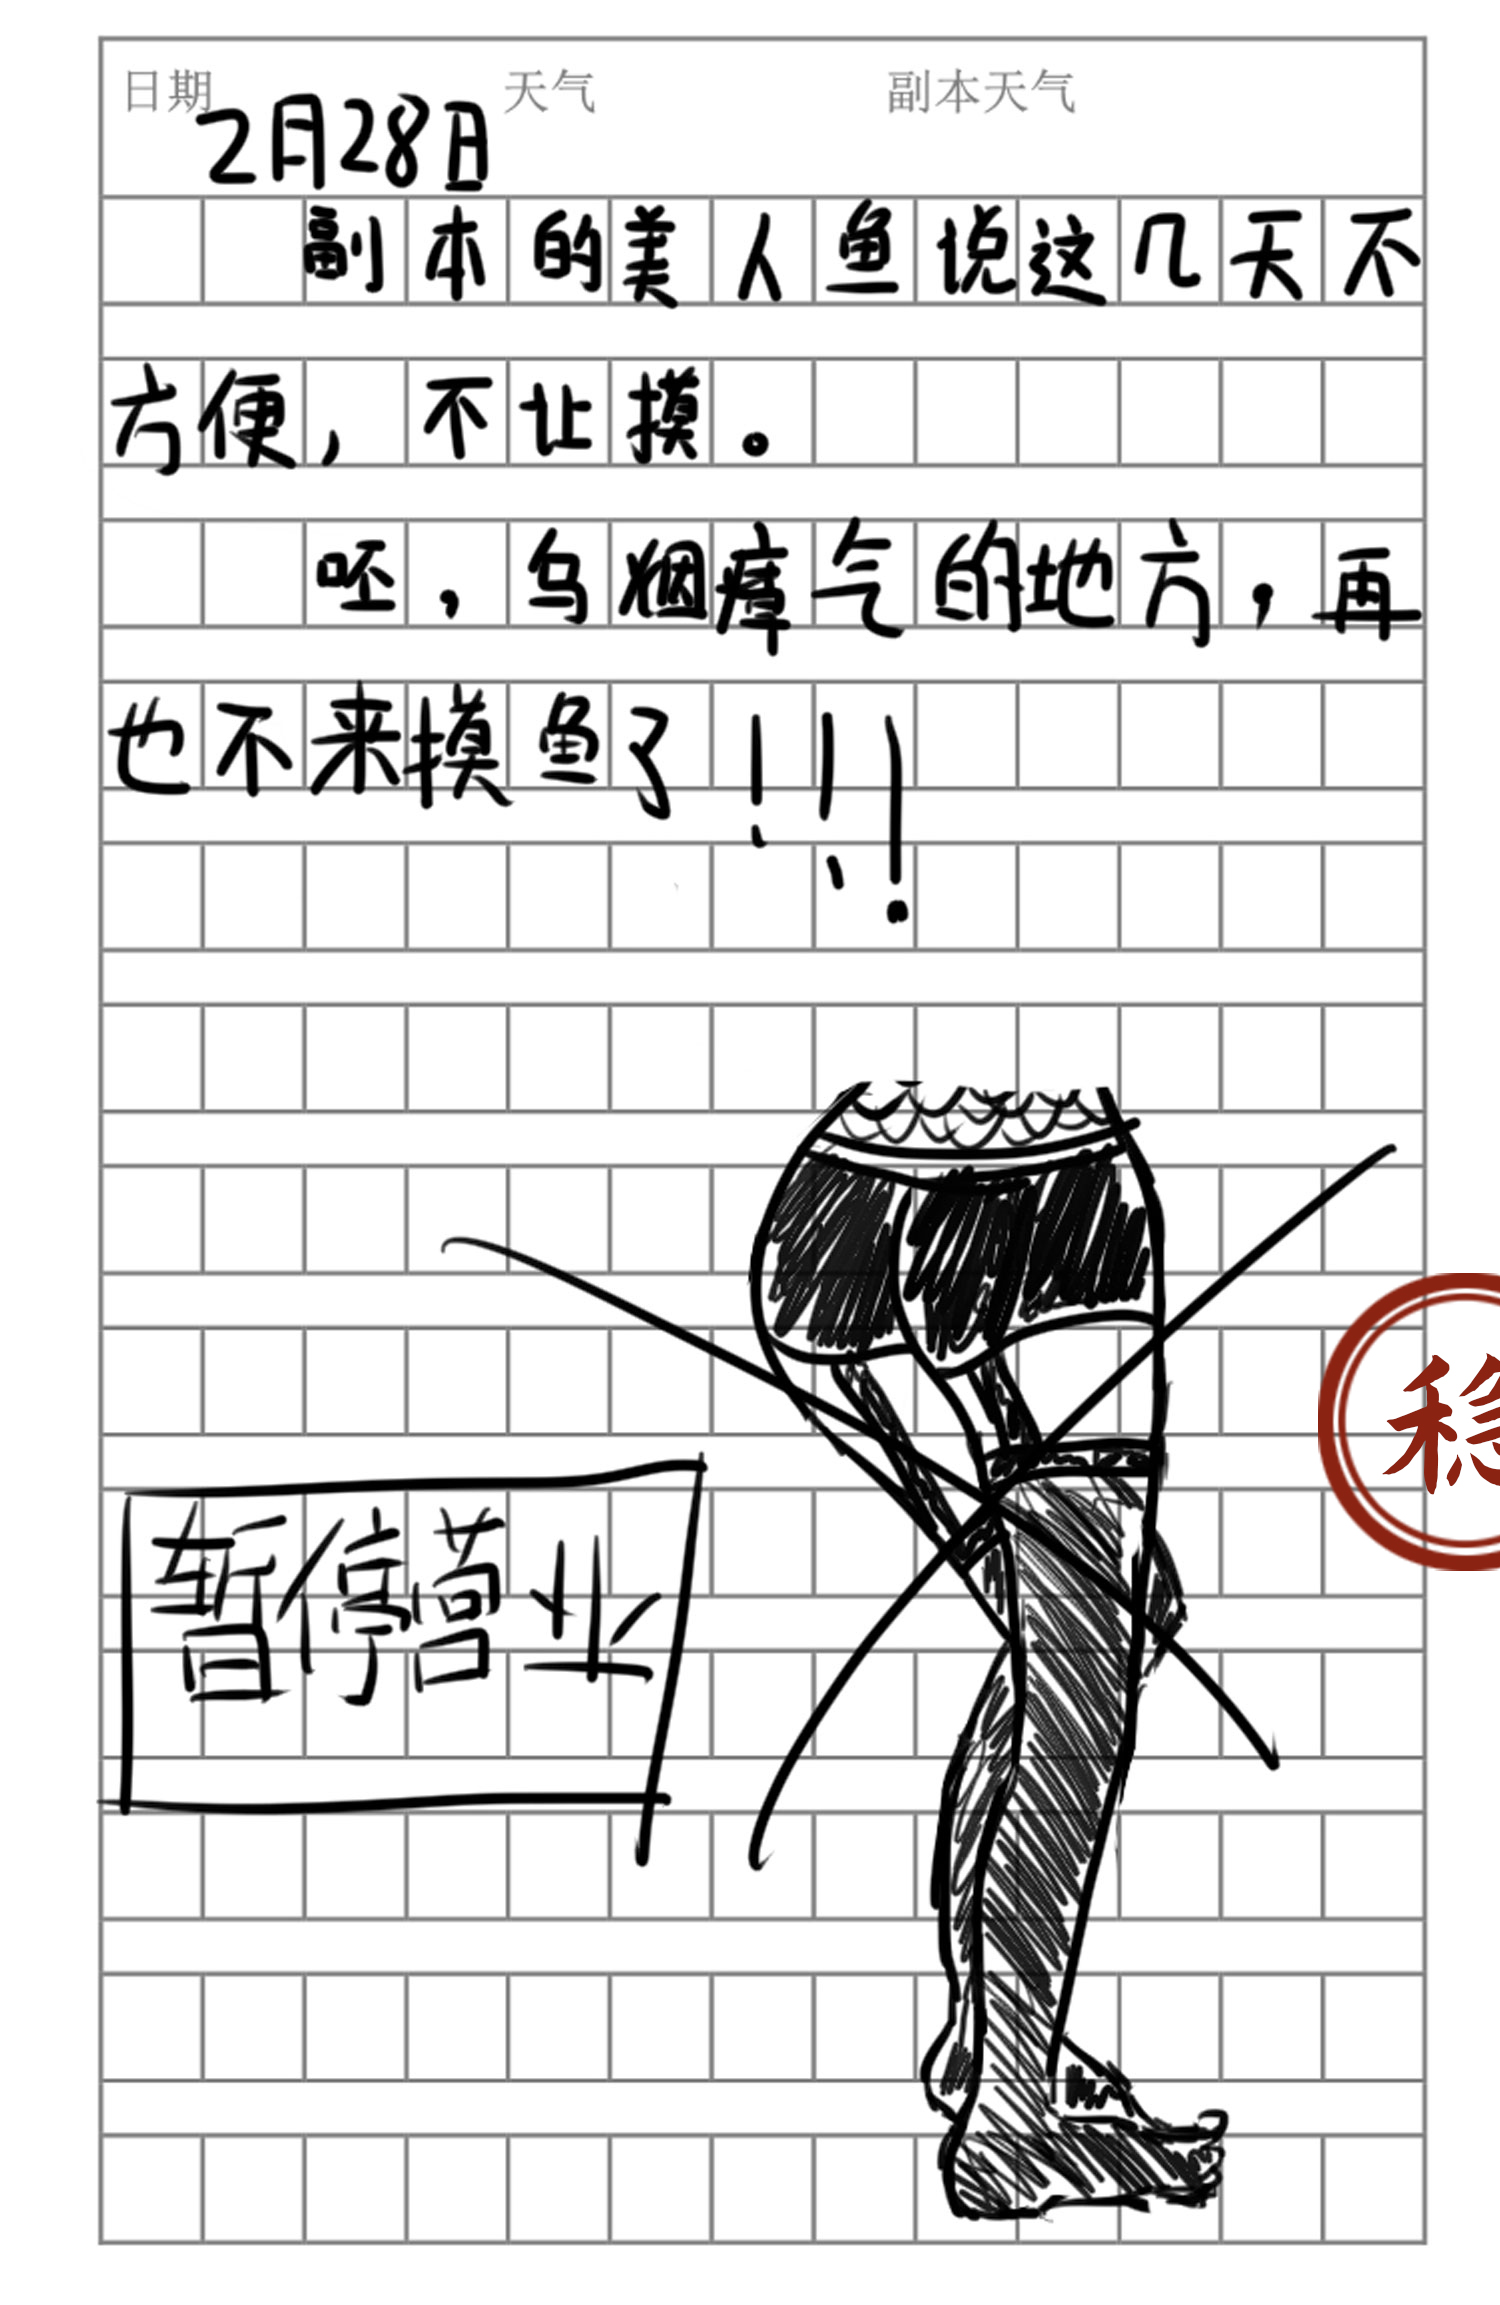 日期 天气 副本天气
2月28日
副本的美人鱼说这几天不
方便，不让摸。
呸，乌烟瘴气的地方，再
也不来摸鱼了！！！
暂停营业
稳